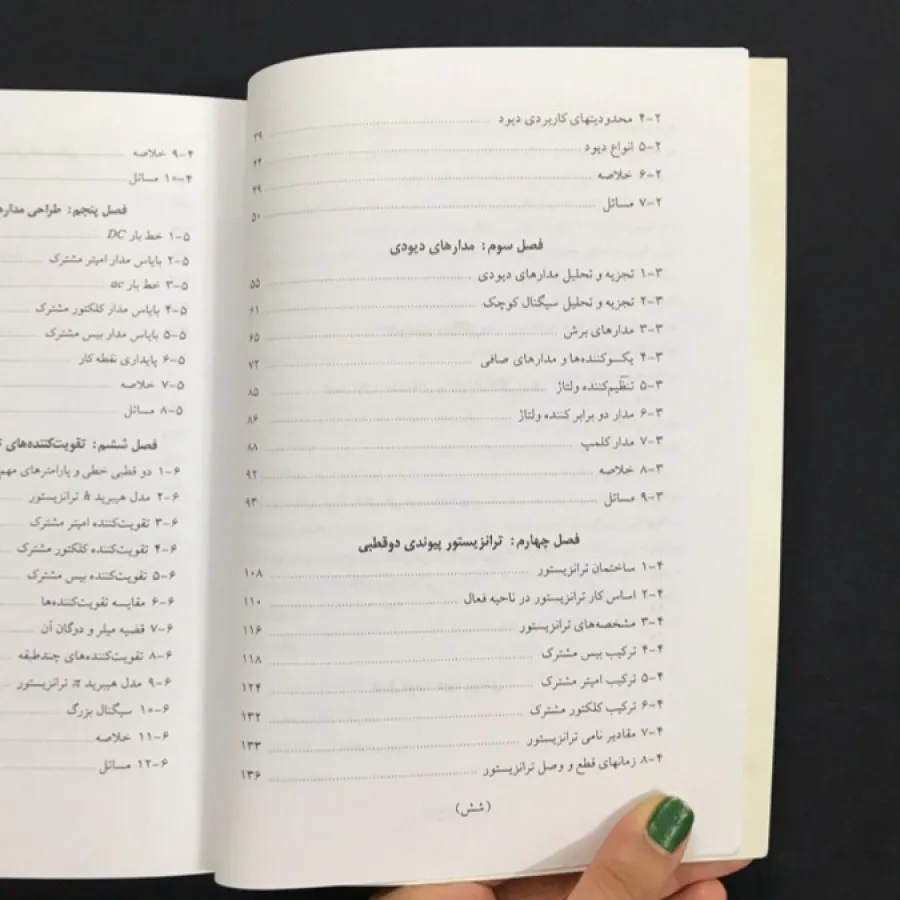 ۴-۲ محدودیتهای کاربردی دیود ۳۹
۵-۲ انواع دیود ۴۴
۶-۲ خلاصه ۴۹
۷-۲ مسائل ۵۰
فصل سوم: مدارهای دیودی
۱-۳ تجزیه و تحلیل مدارهای دیودی ۵۵
۲-۳ تجزیه و تحلیل سیگنال کوچک ۶۱
۳-۳ مدارهای برش ۶۵
۴-۳ یکسوکننده‌ها و مدارهای صافی ۷۲
۵-۳ تنظیم‌کننده ولتاژ ۸۵
۶-۳ مدار دو برابر کننده ولتاژ ۸۶
۷-۳ مدار کلمپ ۸۸
۸-۳ خلاصه ۹۲
۹-۳ مسائل ۹۳
فصل چهارم: ترانزیستور پیوندی دوقطبی
۱-۴ ساختمان ترانزیستور ۱۰۸
۲-۴ اساس کار ترانزیستور در ناحیه فعال ۱۱۰
۳-۴ مشخصه‌های ترانزیستور ۱۱۶
۴-۴ ترکیب بیس مشترک ۱۱۸
۵-۴ ترکیب امیتر مشترک ۱۲۴
۶-۴ ترکیب کلکتور مشترک ۱۳۲
۷-۴ مقادیر نامی ترانزیستور ۱۳۳
۸-۴ زمانهای قطع و وصل ترانزیستور ۱۳۶
(شش)
۹-۴ خلاصه
۱۰-۴ مسائل
فصل پنجم: طراحی
۱-۵ خط بار DC
۲-۵ بایاس مدار امیتر مشترک
۳-۵ خط بار ac
۴-۵ بایاس مدار کلکتور مشترک
۵-۵ بایاس مدار بیس مشترک
۶-۵ پایداری نقطه کار
۷-۵ خلاصه
۸-۵ مسائل
فصل ششم: تقویت‌کننده‌های
۱-۶ دو قطبی خطی و پارامترهای مهم
۲-۶ مدل هیبرید h ترانزیستور
۳-۶ تقویت‌کننده امیتر مشترک
۴-۶ تقویت‌کننده کلکتور مشترک
۵-۶ تقویت‌کننده بیس مشترک
۶-۶ مقایسه تقویت‌کننده‌ها
۷-۶ قضیه میلر و دوگان آن
۸-۶ تقویت‌کننده‌های چندطبقه
۹-۶ مدل هیبرید π ترانزیستور
۱۰-۶ سیگنال بزرگ
۱۱-۶ خلاصه
۱۲-۶ مسائل